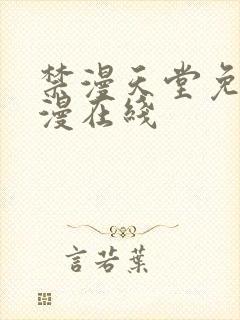 禁漫天堂免
漫在线
言若叶